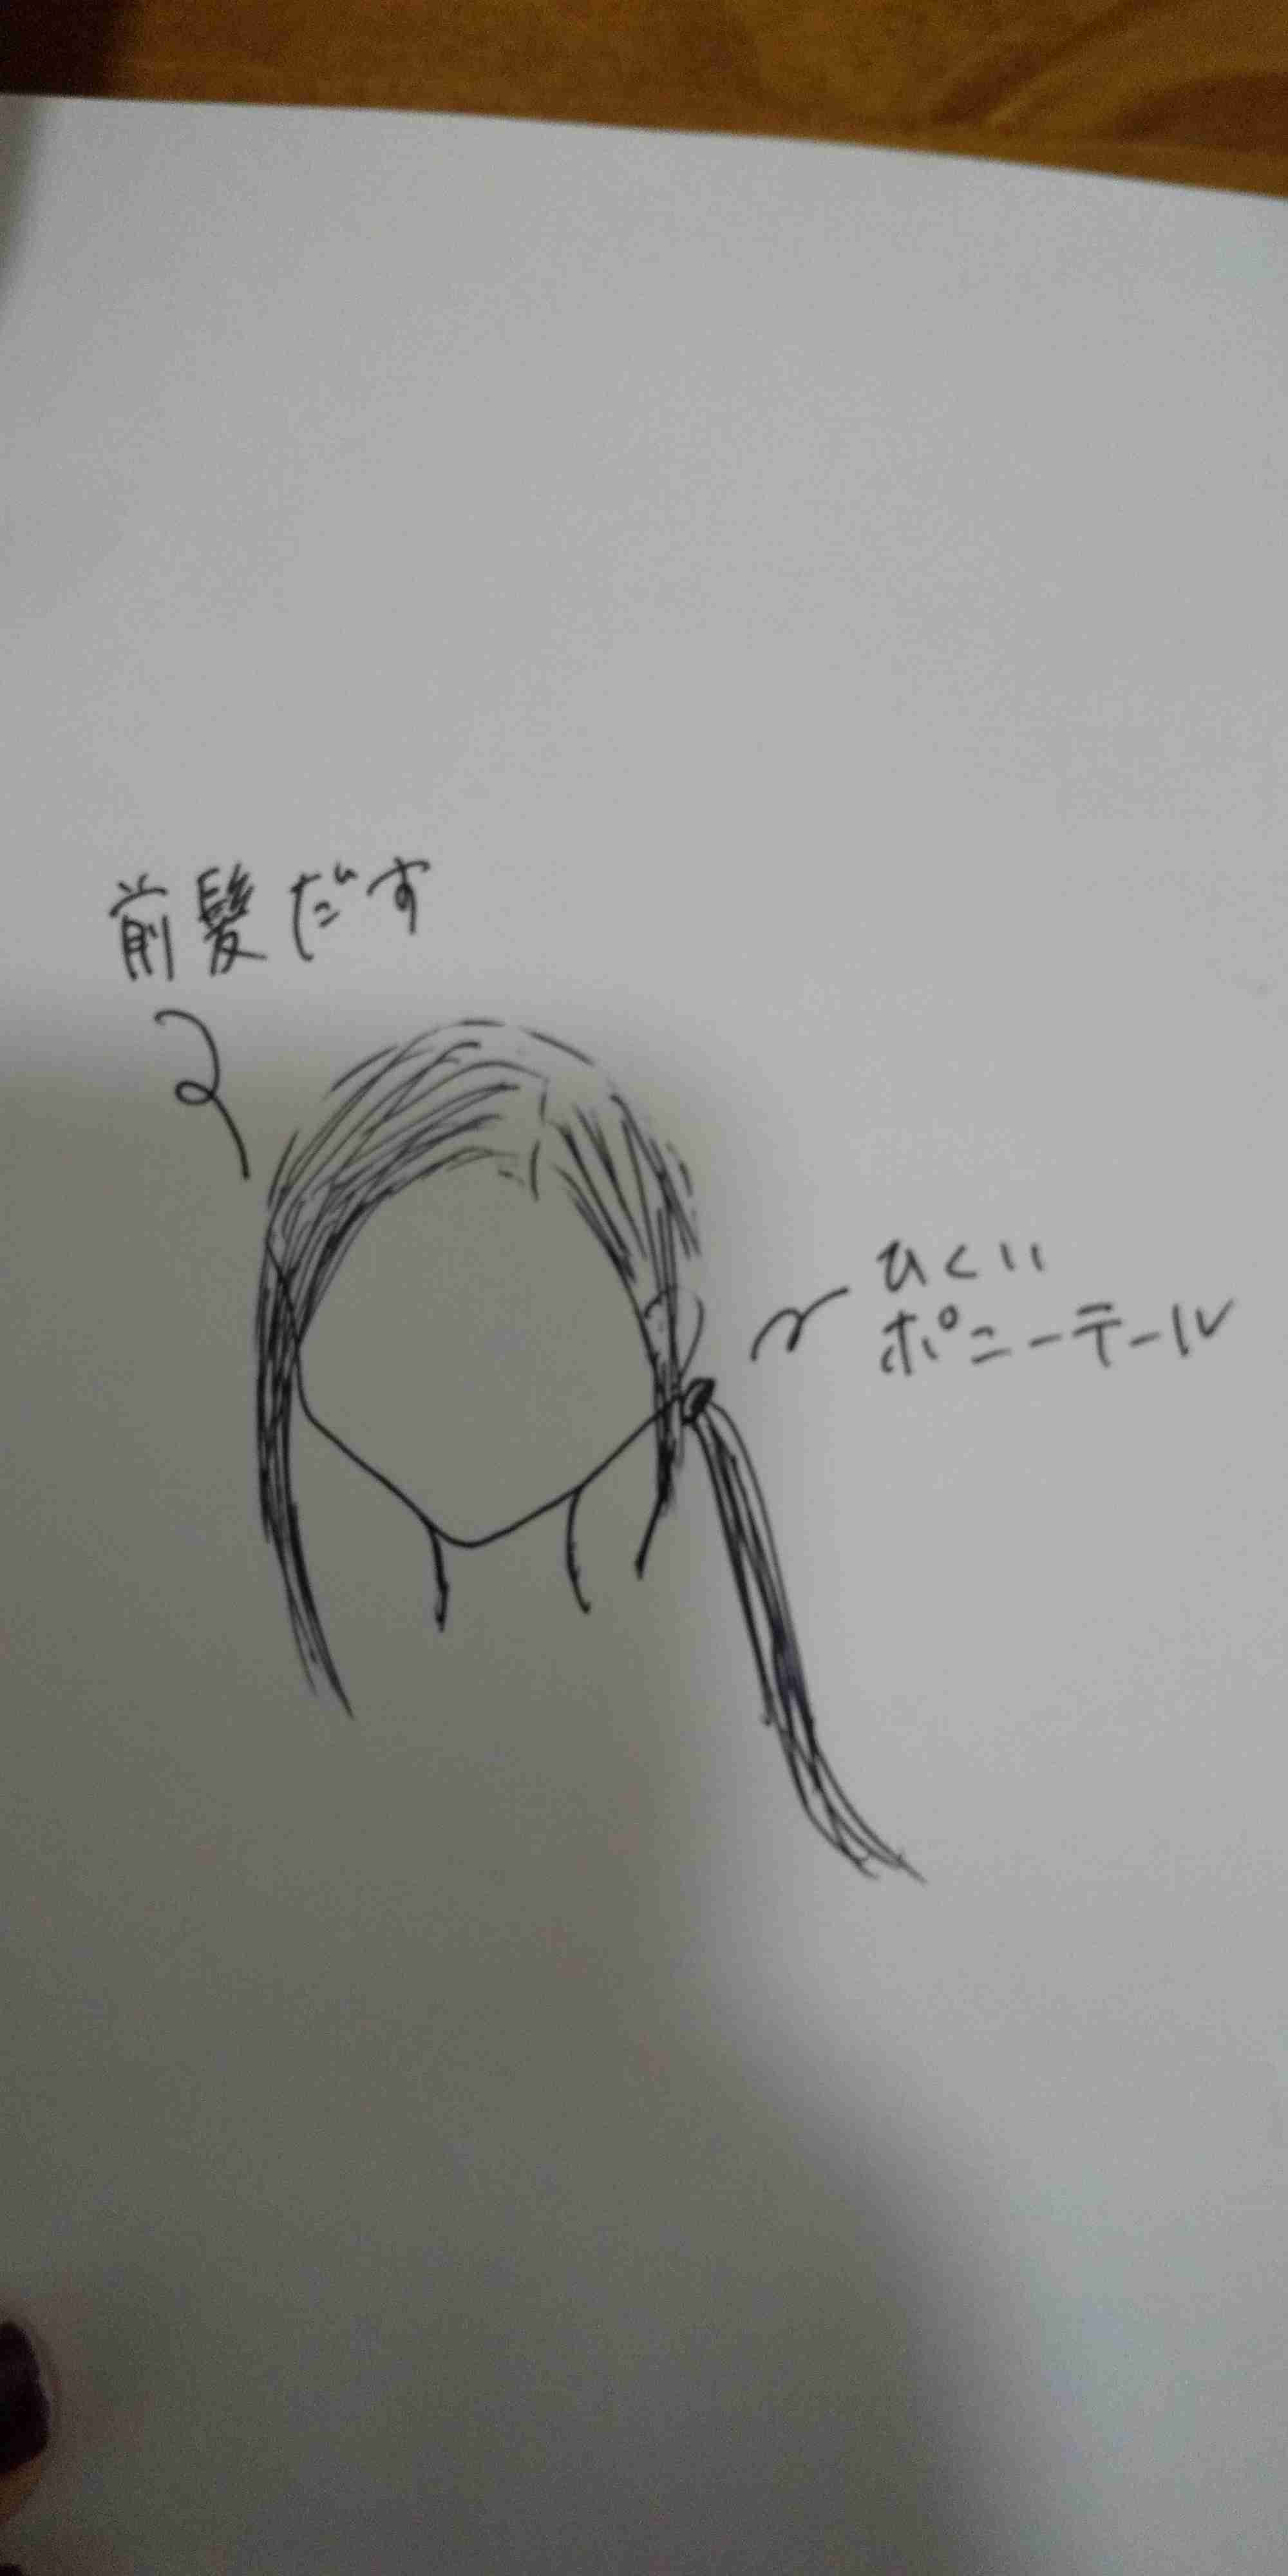 前髪だす
ひくい
ポニーテール